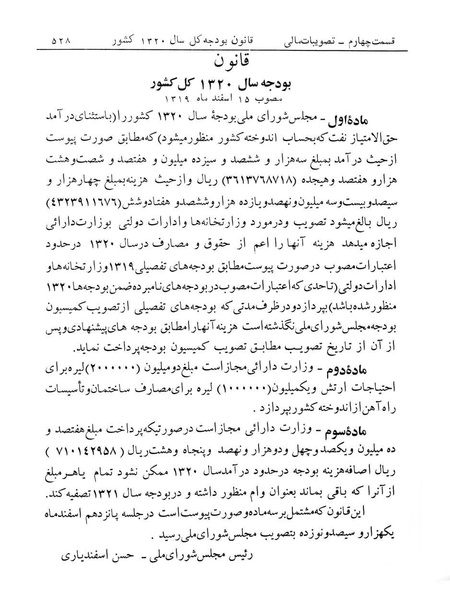 قسمت چهارم ـ تصویبات مالی قانون بودجه کل سال ۱۳۲۰ کشور ۵۲۸
قانون
بودجه سال ۱۳۲۰ کل کشور
مصوب ۱۵ اسفند ماه ۱۳۱۹
مادۀ اول ـ مجلس شورای ملی بودجۀ سال ۱۳۲۰ کشور را (باستثنای درآمد
حق‌الامتیاز نفت که بحساب اندوخته کشور منظور میشود) که مطابق صورت پیوست
از حیث درآمد بمبلغ سه هزار و ششصد و سیزده میلیون و هفتصد و شصت و هشت
هزار و هفتصد و هیجده (۳۶۱۳۷۶۸۷۱۸) ریال و از حیث هزینه بمبلغ چهار هزار و
سیصد و بیست و سه میلیون و نهصد و یازده هزار و ششصد و هفتاد و شش (۴۳۲۳۹۱۱۶۷۶)
ریال بالغ میشود تصویب و در مورد وزارتخانه‌ها و ادارات دولتی بوزارت دارائی
اجازه میدهد هزینه آنها را اعم از حقوق و مصارف در سال ۱۳۲۰ در حدود
اعتبارات مصوب در صورت پیوست مطابق بودجه‌های تفصیلی ۱۳۱۹ وزارتخانه‌ها و
ادارات دولتی (تا حدی که اعتبارات مصوب در بودجه‌های نامبرده ضمن بودجه‌ها ۱۳۲۰
منظور شده باشد) بپردازد و در ظرف مدتی که بودجه‌های تفصیلی از تصویب کمیسیون
بودجه مجلس شورای ملی نگذشته است هزینه آنها را مطابق بودجه های پیشنهادی و پس
از آن از تاریخ تصویب مطابق تصویب کمیسیون بودجه پرداخت نماید.
مادۀ دوم ـ وزارت دارائی مجاز است مبلغ دو میلیون (۲۰۰۰۰۰۰) لیره برای
احتیاجات ارتش و یکمیلیون (۱۰۰۰۰۰۰) لیره برای مصارف ساختمان و تأسیسات
راه آهن از اندوخته کشور بپردازد .
مادۀ سوم ـ وزارت دارائی مجاز است در صورتیکه پرداخت مبلغ هفتصد و
ده میلیون و یکصد و چهل و دو هزار و نهصد و پنجاه و هشت ریال ( ۷۱۰۱۴۲۹۵۸ )
ریال اضافه هزینه بودجه در حدود درآمد سال ۱۳۲۰ ممکن نشود تمام یا هر مبلغ
از آنرا که باقی بماند بعنوان وام منظور داشته و در بودجه سال ۱۳۲۱ تصفیه کند.
این قانون که مشتمل بر سه ماده و صورت پیوست است در جلسه پانزدهم اسفند ماه
یکهزار و سیصد و نوزده بتصویب مجلس شورای ملی رسید .
رئیس مجلس شورای ملی ـ حسن اسفندیاری